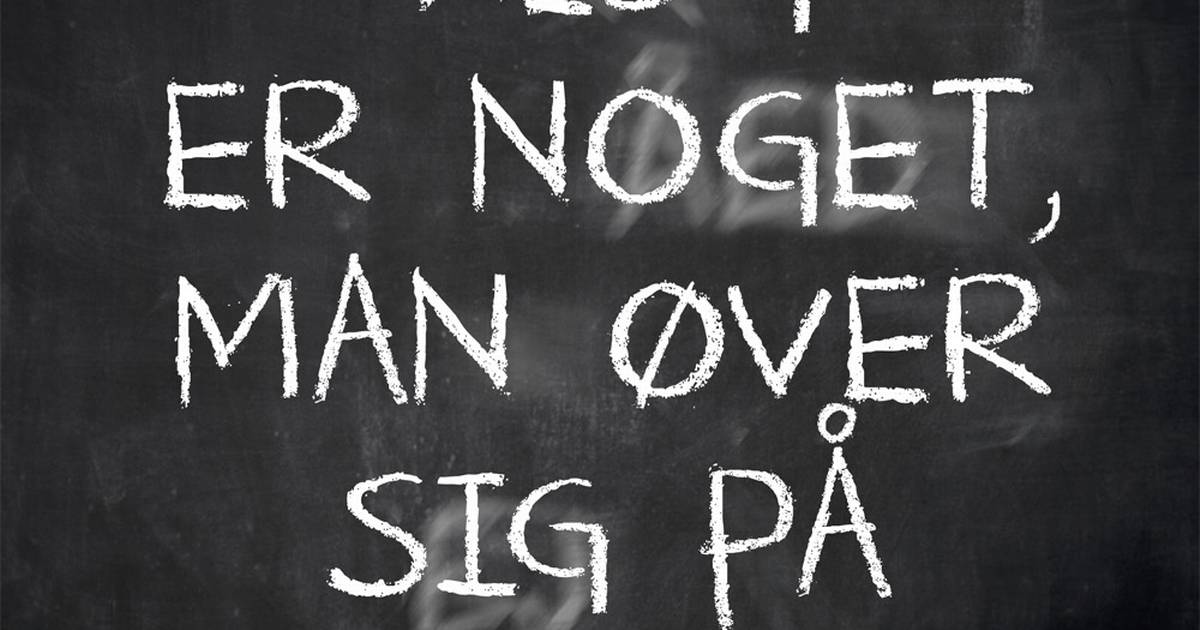 ER NOGET,
MAN ØVER
SIG PÅ